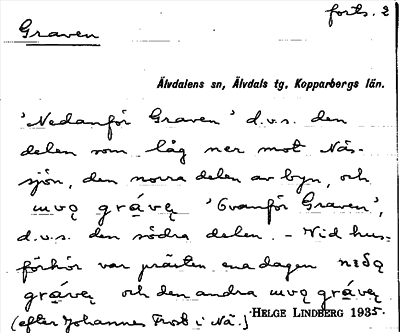 forts. 2
Graven
Älvdalens sn, Älvdals tg, Kopparbergs län.
'Nedanför Graven' d.v.s. den
delen som låg ner mot Näs-
sjön, den norra delen av byn, och
uvǫ grávę 'Ovanför Graven',
d.v.s. den södra delen. – Vid hus-
förhör var prästen ena dagen niðǫ
grávę och den andra uvǫ grávę
(efter Johannes Frost i Nä.)
HELGE LINDBERG 1935.